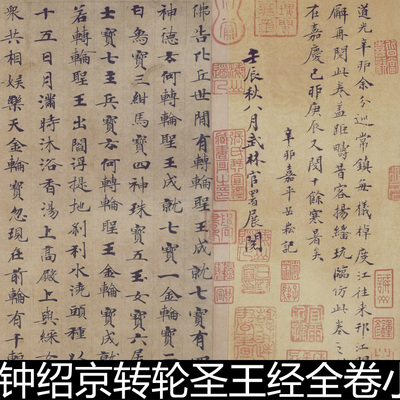 道光辛卯余分巡常鎮每檥棹度江往來邗江
廨再閱此卷蓋距疇昔客揚繙玩臨仿此卷之
在嘉慶己卯庚辰又閱十餘寒暑矣
辛卯嘉平岳崧記
壬辰秋八月武林官署展閱
佛告比丘世間有轉輪聖王成就七寶有
神德云何轉輪聖王成就七寶一金輪寶二
白象寶三紺馬寶四神珠寶五玉女寶六居
士寶七主兵寶云何轉輪聖王金輪寶成
若轉輪聖王出閻浮提地剎利水澆頭種以
十五日月滿時沐浴香湯上高殿上與婇女
衆共相娛樂天金輪寶忽現在前輪有千輻
钟绍京转轮圣王经全卷小